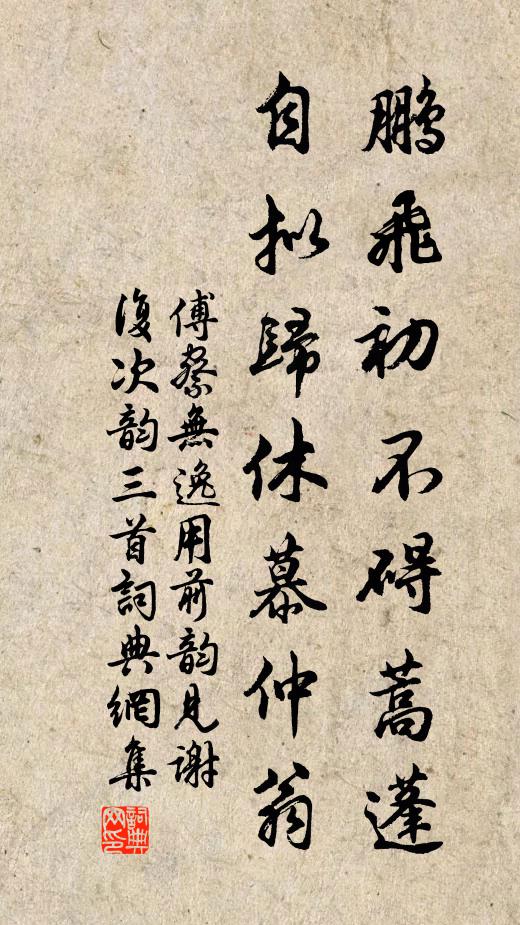 鵬飛初不碍蒿蓬
自拟歸休慕仲翁
傅察無逸用前韵見謝
復次韵三首詞典網集
詞典網印